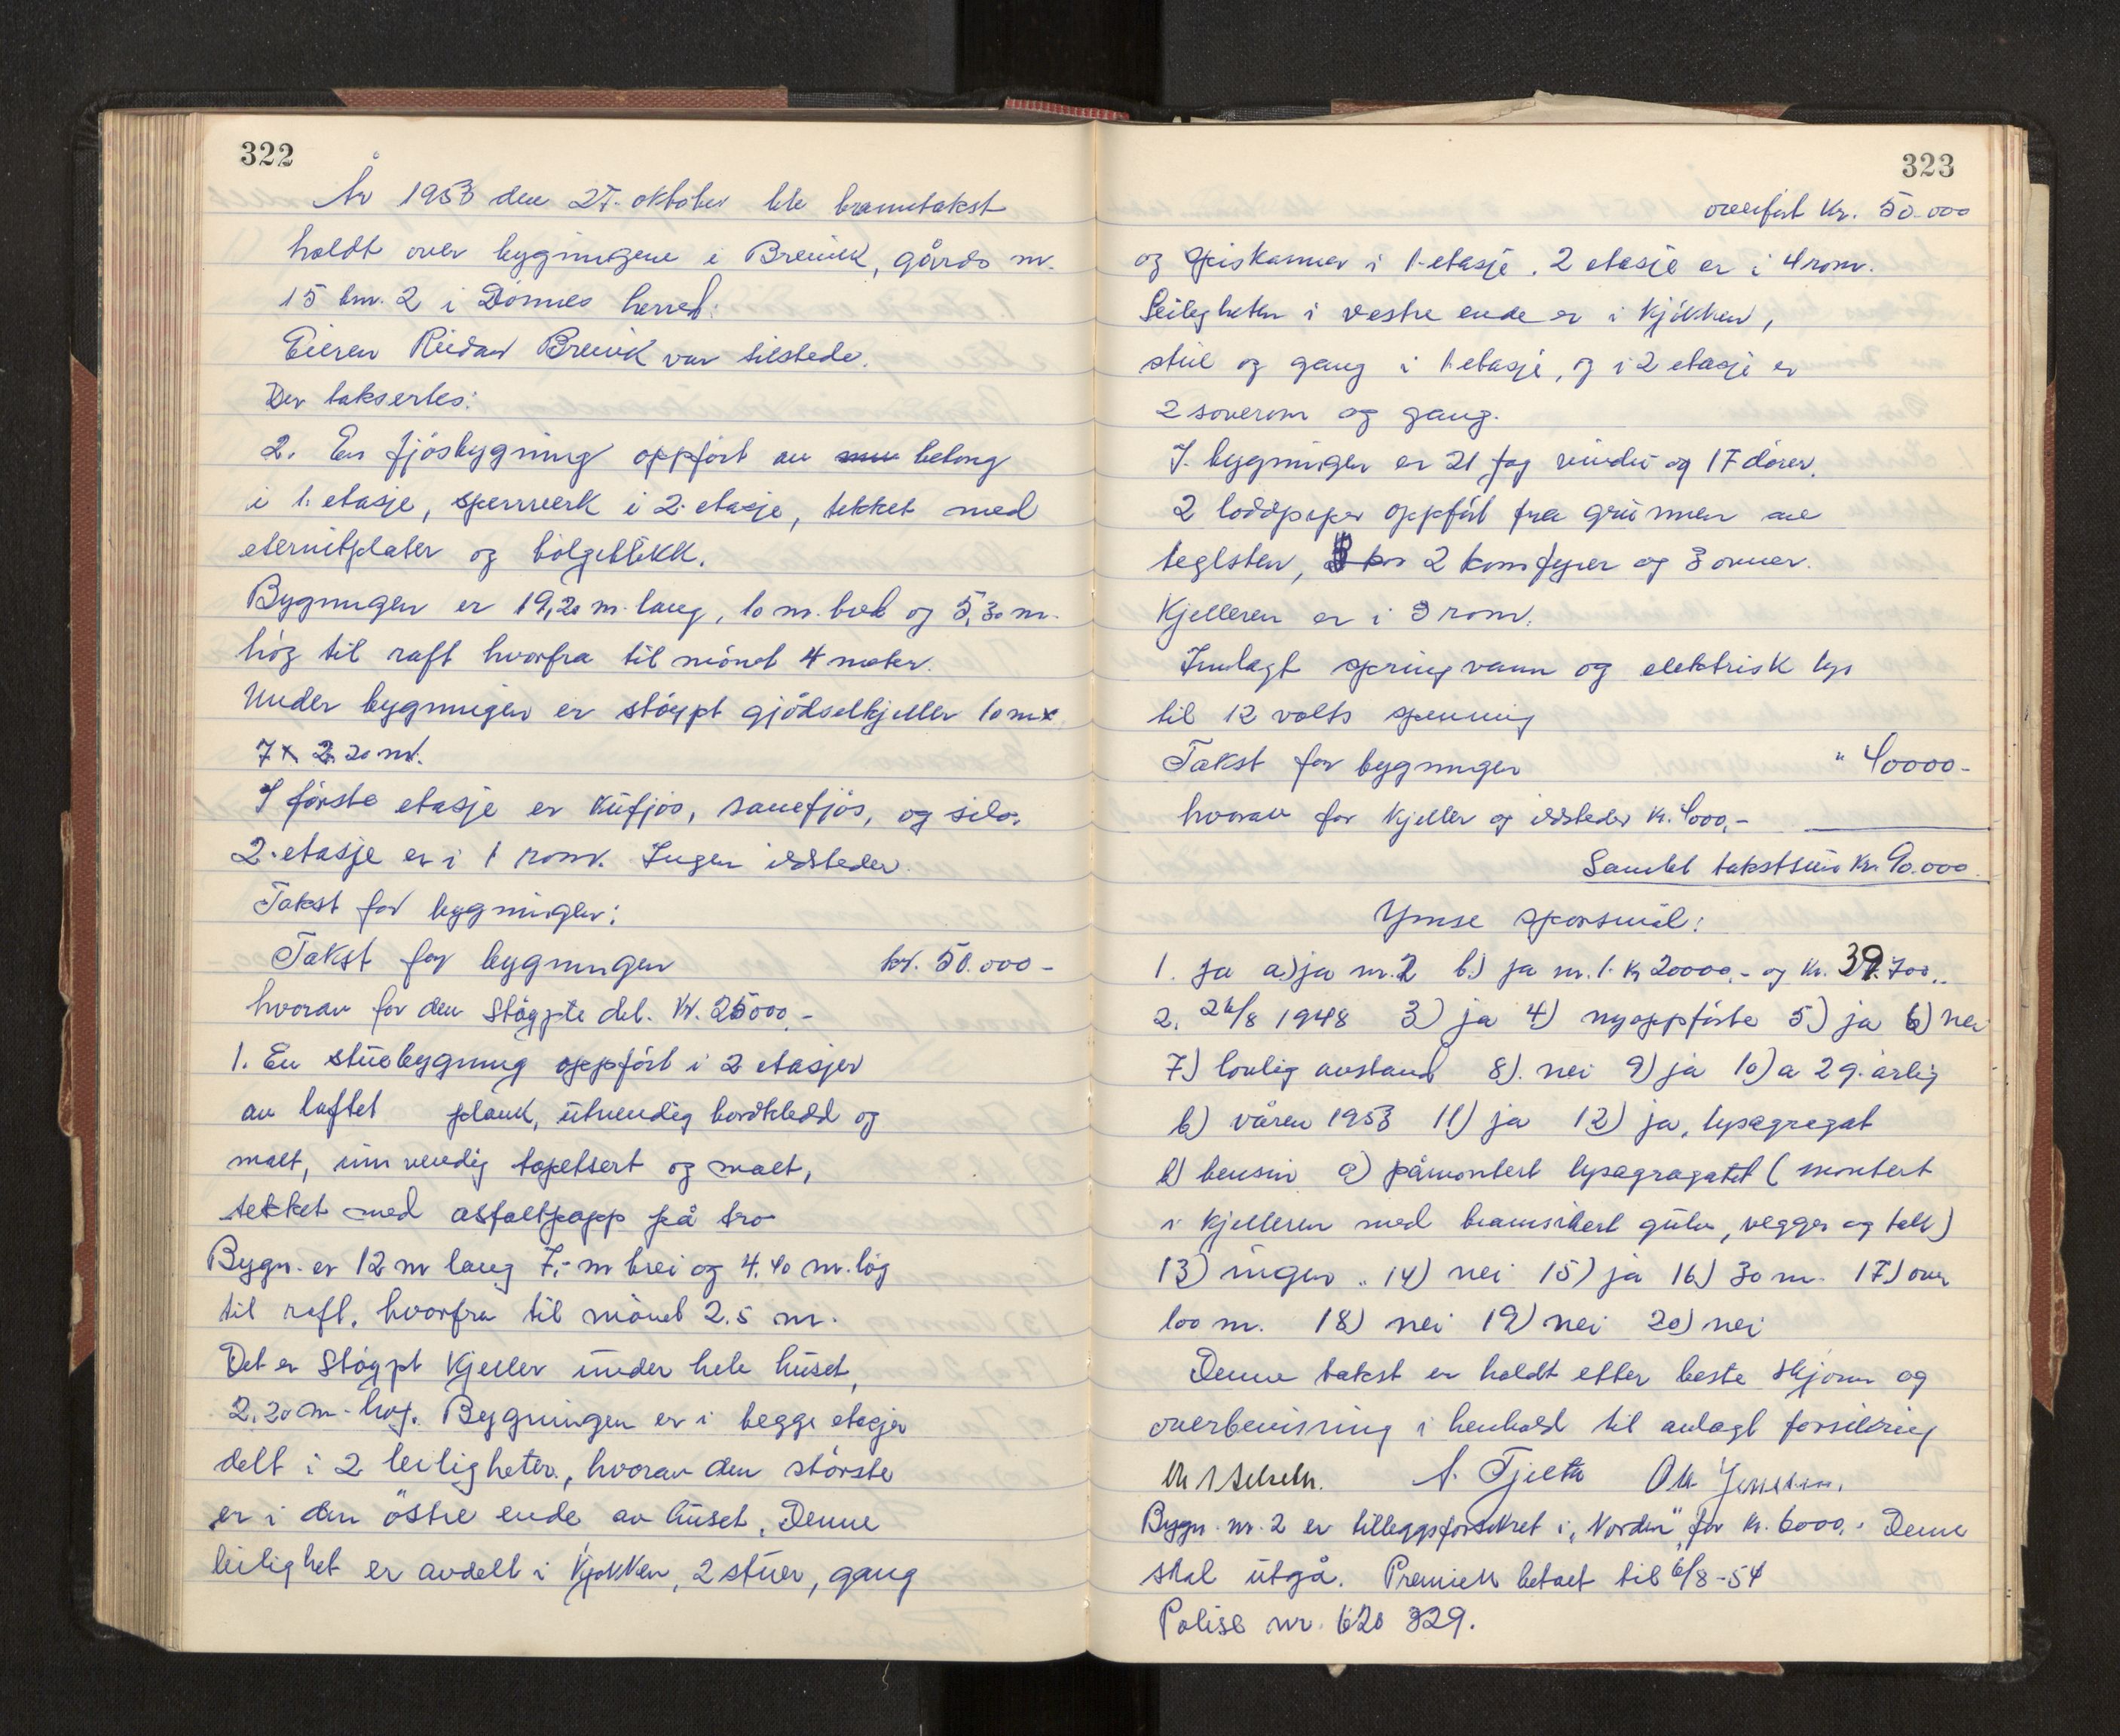 322
År 1953 den 27. oktober ble branntakst
holdt over bygningene i Breivik, gårds nr.
15 bnr. 2 i Dønnes herred.
Eieren Reidar Breivik var tilstede.
Der taksertes:
2. En fjøsbygning oppført av betong
i 1. etasje, sperrverk i 2. etasje, tekket med
eternitplater og bølgeblikk.
Bygningen er 19,20 m. lang, 10 m. bred og 5,30 m.
høg til raft hvorfra til mønet 4 meter.
Under bygningen er støypt gjødselkjeller 10 m x
7 x 2.20 m.
I første etasje er kufjøs, sauefjøs, og silo.
2. etasje er i 1 rom. Ingen ildsteder.
Takst for bygningen:
Takst for bygningen kr. 50.000-
hvorav for den støypte del. Kr. 25000.-
1. En stuebygning oppført i 2 etasjer
av laftet plank, utvendig bordkledd og
malt, innvendig tapetsert og malt,
tekket med asfaltpapp på tro
Bygn. er 12 m lang 7,- m brei og 4.40 m. høg
til raft, hvorfra til mønet 2.5 m.
Det er støypt kjeller under hele huset,
2.20 m. høg. Bygningen er i begge etasjer
delt i 2 leiligheter, hvorav den største
er i den østre ende av huset. Denne
leilighet er avdelt i kjøkken, 2 stuer, gang
323
overført Kr. 50.000
og spiskammer i 1. etasje. 2 etasje er i 4 rom.
Leiligheten i vestre ende er i kjøkken,
stue og gang i 1 etasje, og i 2 etasje er
2 soverom og gang.
I bygningen er 21 fag vinduer og 17 dører.
2 loddpiper oppført fra grunnen av
teglsten, 2 komfyrer og 3 ovner.
Kjelleren er i 3 rom.
Innlagt springvann og elektrisk lys
til 12 volts spenning
Takst for bygningen " 40000-
hvorav for kjeller og ildsteder kr. 4000,-
Samlet takstsum Kr. 90.000.
Ymse spørsmål:
1. ja a) ja nr. 2 b.) ja nr. 1. Kr 20000.- og Kr. 39.700..
2. 26/8 1948 3) ja 4) nyoppførte 5) ja 6) nei
7.) lovlig avstand 8). nei 9) ja 10) a 2 g. årlig
b) våren 1953 11) ja 12) ja, lysagregat
b) bensin c) påmontert lysagragatet (montert
i kjelleren med brannsikert gulv, vegger og tak)
13) ingen. 14) nei 15) ja 16) 30 m. 17) over
100 m. 18) nei 19) nei 20) nei
Denne takst er holdt etter beste skjønn og
overbevisning i henhold til avlagt forsikring
A. Fjelth Jenssen.
Bygn. nr. 2 er tilleggsforsikret i "Norden" for kr. 6000.- Denne
skal utgå. Premien betalt til 6/8-54
Polise nr. 620 329.